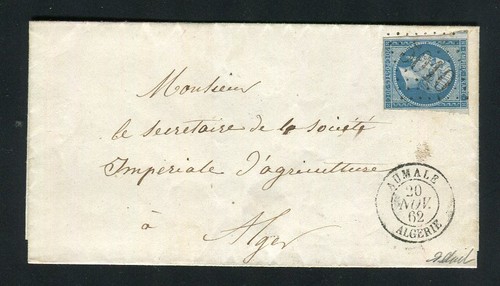 Monsieur
le secretaire de la société
Imperiale d'agriculture
à
Alger
AUMALE
20
NOVE
62
ALGERIE